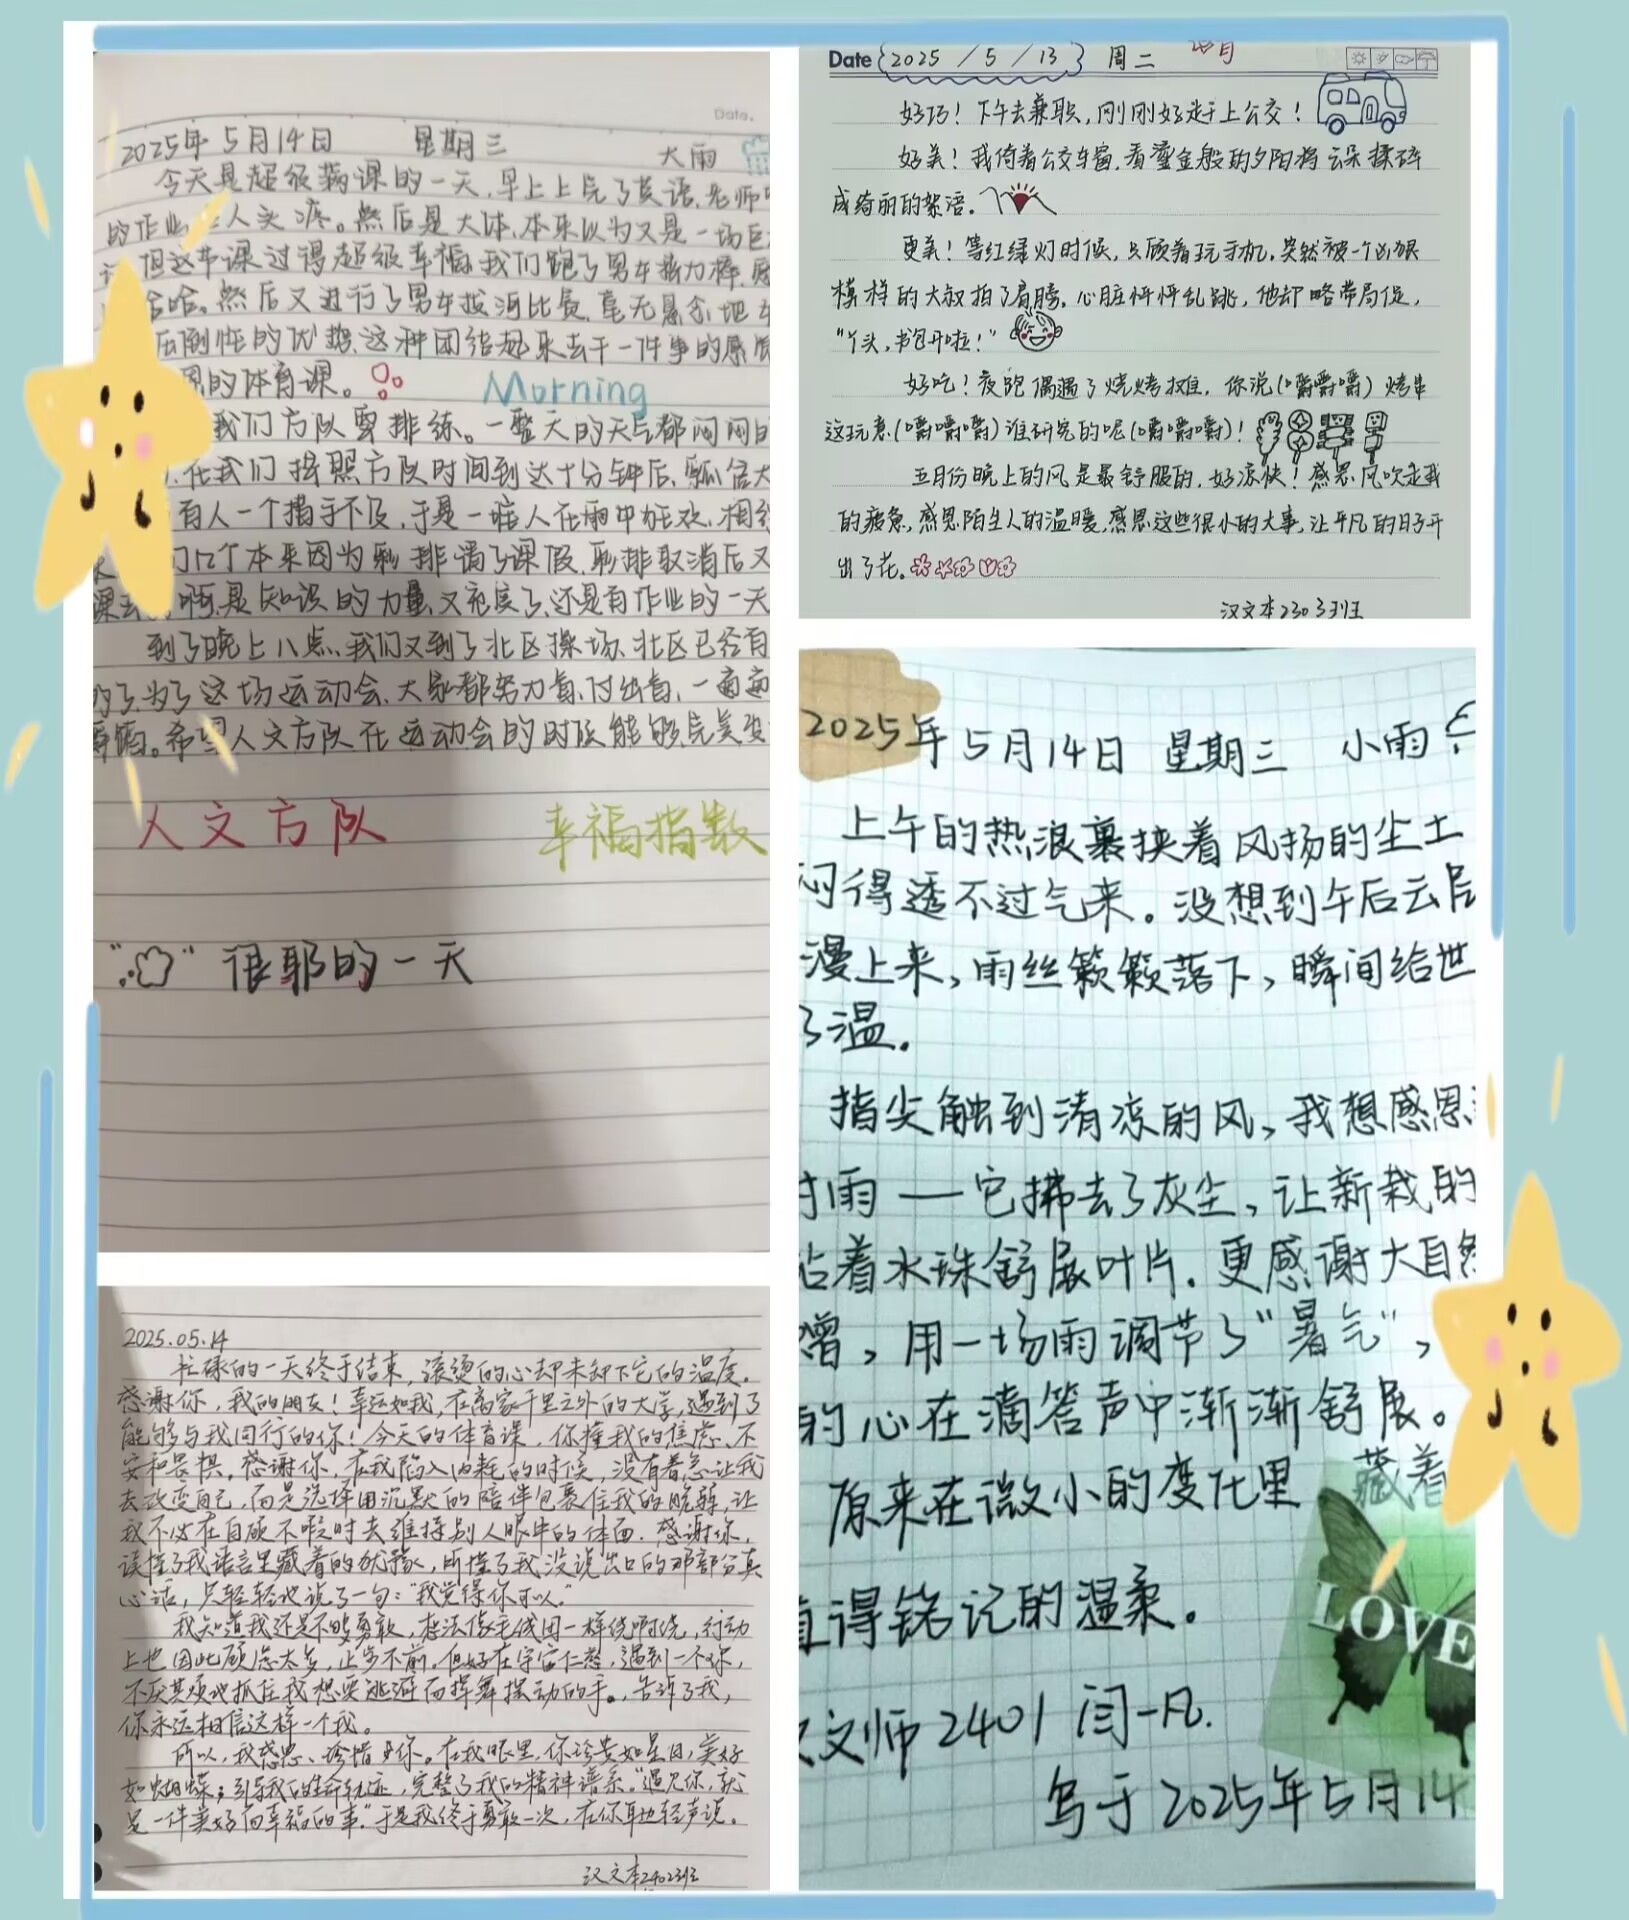 Date.
2025年5月14日 星期三 大雨
今天是超级满课的一天,早上上完了英语,老师
的作业 人头疼。然后是大体,本来以为又是一场
但这节课过得超级幸福,我们跑了男女接力棒,
哈哈。然后又进行了男女拔河比赛,毫无悬念地
压倒性的优势,这种团结起来去干一件事的感
的体育课。
Morning
我们方队要排练。一整天的天气都闷闷的
在我们按照方队时间到达十分钟后,瓢信大
有人一个措手不及,于是一堆人在雨中狂欢,相
们12个本来因为彩排请了课假,彩排取消后又
课去 啊,是知识的力量,又充实了,还是有作业的一天
到了晚上八点,我们又到了北区操场,北区已经有
的了,为了这场运动会,大家都努力着,付出着,一遍遍
希望人文方队在运动会的时候能够完美
人文方队 幸福指数
“ ”很耶的一天
Date 2025/5/13 周二
好巧!下午去兼职,刚刚好赶上公交!
好美!我倚着公交车窗,看鎏金般的夕阳将云朵揉碎
成绮丽的絮语。
更美!等红绿灯时候,只顾着玩手机,突然被一个凶狠
模样的大叔拍了肩膀。心脏怦怦乱跳,他却略带局促,
“丫头,书包开啦!”
好吃!夜跑偶遇了烧烤摊,你说(嚼嚼嚼)烤串
这玩意(嚼嚼嚼)谁研究的呢(嚼嚼嚼)!
五月份晚上的风是最舒服的,好凉快!感恩风吹走我
的疲惫,感恩陌生人的温暖,感恩这些很小的大事,让平凡的日子开
出了花。
汉文本2303班
2025年5月14日 星期三 小雨
上午的热浪裹挟着风扬的尘土
闷得透不过气来。没想到午后云层
漫上来,雨丝簌簌落下,瞬间给世
了温。
指尖触到清凉的风,我想感恩
时雨——它拂去了灰尘,让新栽的
沾着水珠舒展叶片。更感谢大自然
,用一场雨调节了“暑气”,
的心在滴答声中渐渐舒展。
原来在微小的变化里 藏着
值得铭记的温柔。
LOVE
汉文师2401 闫一凡.
写于2025年5月14
2025.05.14
忙碌的一天终于结束,滚烫的心却未卸下它的温度。
感谢你,我的朋友!幸运如我,在离家千里之外的大学,遇到了
能够与我同行的你!今天的体育课,你懂我的焦虑、不
安和畏惧。感谢你,在我陷入内耗的时候,没有着急让我
去改变自己,而是选择用沉默的陪伴包裹住我的脆弱,让
我不必在自顾不暇时去维持别人眼中的体面。感谢你,
读懂了我语言里藏着的犹豫,听懂了我没说出口的那部分真
心话,只轻轻地说了一句:“我觉得你可以。”
我知道我还是不够勇敢,想法像毛线团一样绕啊绕,行动
上也因此顾虑太多,止步不前。但好在宇宙仁慈,遇到一个你,
不厌其烦地抓住我想要逃避而挥舞摆动的手。告诉了我,
你永远相信这样一个我。
所以,我感恩、珍惜 你。在我眼里,你珍贵如星日,美好
如蝴蝶;引导我的生命轨迹,完整了我的精神谱系。“遇见你,就
是一件美好而幸福的事。”于是我终于勇敢一次,在你耳边轻声说。
汉文本2402班